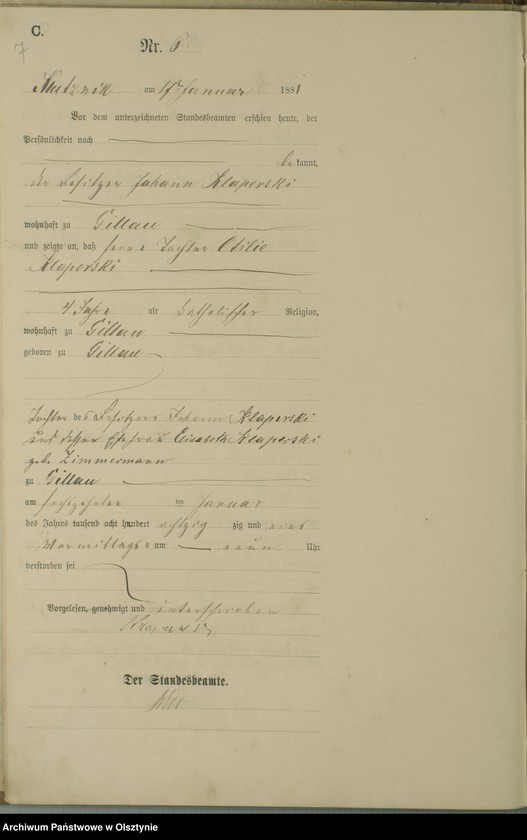 C.
7
Nr. 6
am 17ten Januar 1881
Vor dem unterzeichneten Standesbeamten erschien heute, der
Persönlichkeit nach
bekannt,
der Besitzer Johann Klaperski
wohnhaft zu Gillau
und zeigte an, daß seine Tochter Otilie
Klaperski
4 Jahre alt katholischer Religion,
wohnhaft zu Gillau
geboren zu Gillau
Tochter des Besitzers Johann Klaperski
und dessen Ehefrau Elisabeth Klaperski
geb. Zimmermann
zu Gillau
am sechszehnten im Januar
des Jahrs tausend acht hundert achtzig zig und eins
Vormittags um neun Uhr
verstorben sei
Vorgelesen, genehmigt und unterschrieben
Der Standesbeamte.
Archiwum Państwowe w Olsztynie